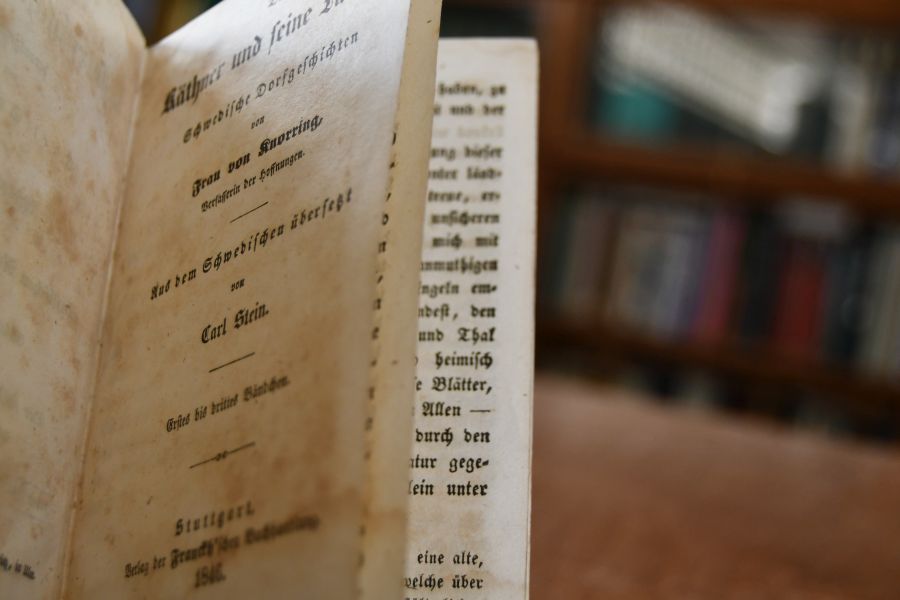 Käthner und seine
Schwedische Dorfgeschichten
von
Frau von Knorring,
Verfasserin der Hoffnungen.
Aus dem Schwedischen übersetzt
von
Carl Stein.
Erstes bis drittes Bändchen.
Stuttgart.
Verlag der Franckh'schen Buchhandlung.
1846.
haben, zu
und der
dieser
unsicheren
mich mit
anmuthigen
em-
den
und Thal
heimisch
Blätter,
Allen —
durch den
gege-
unter
eine alte,
welche über